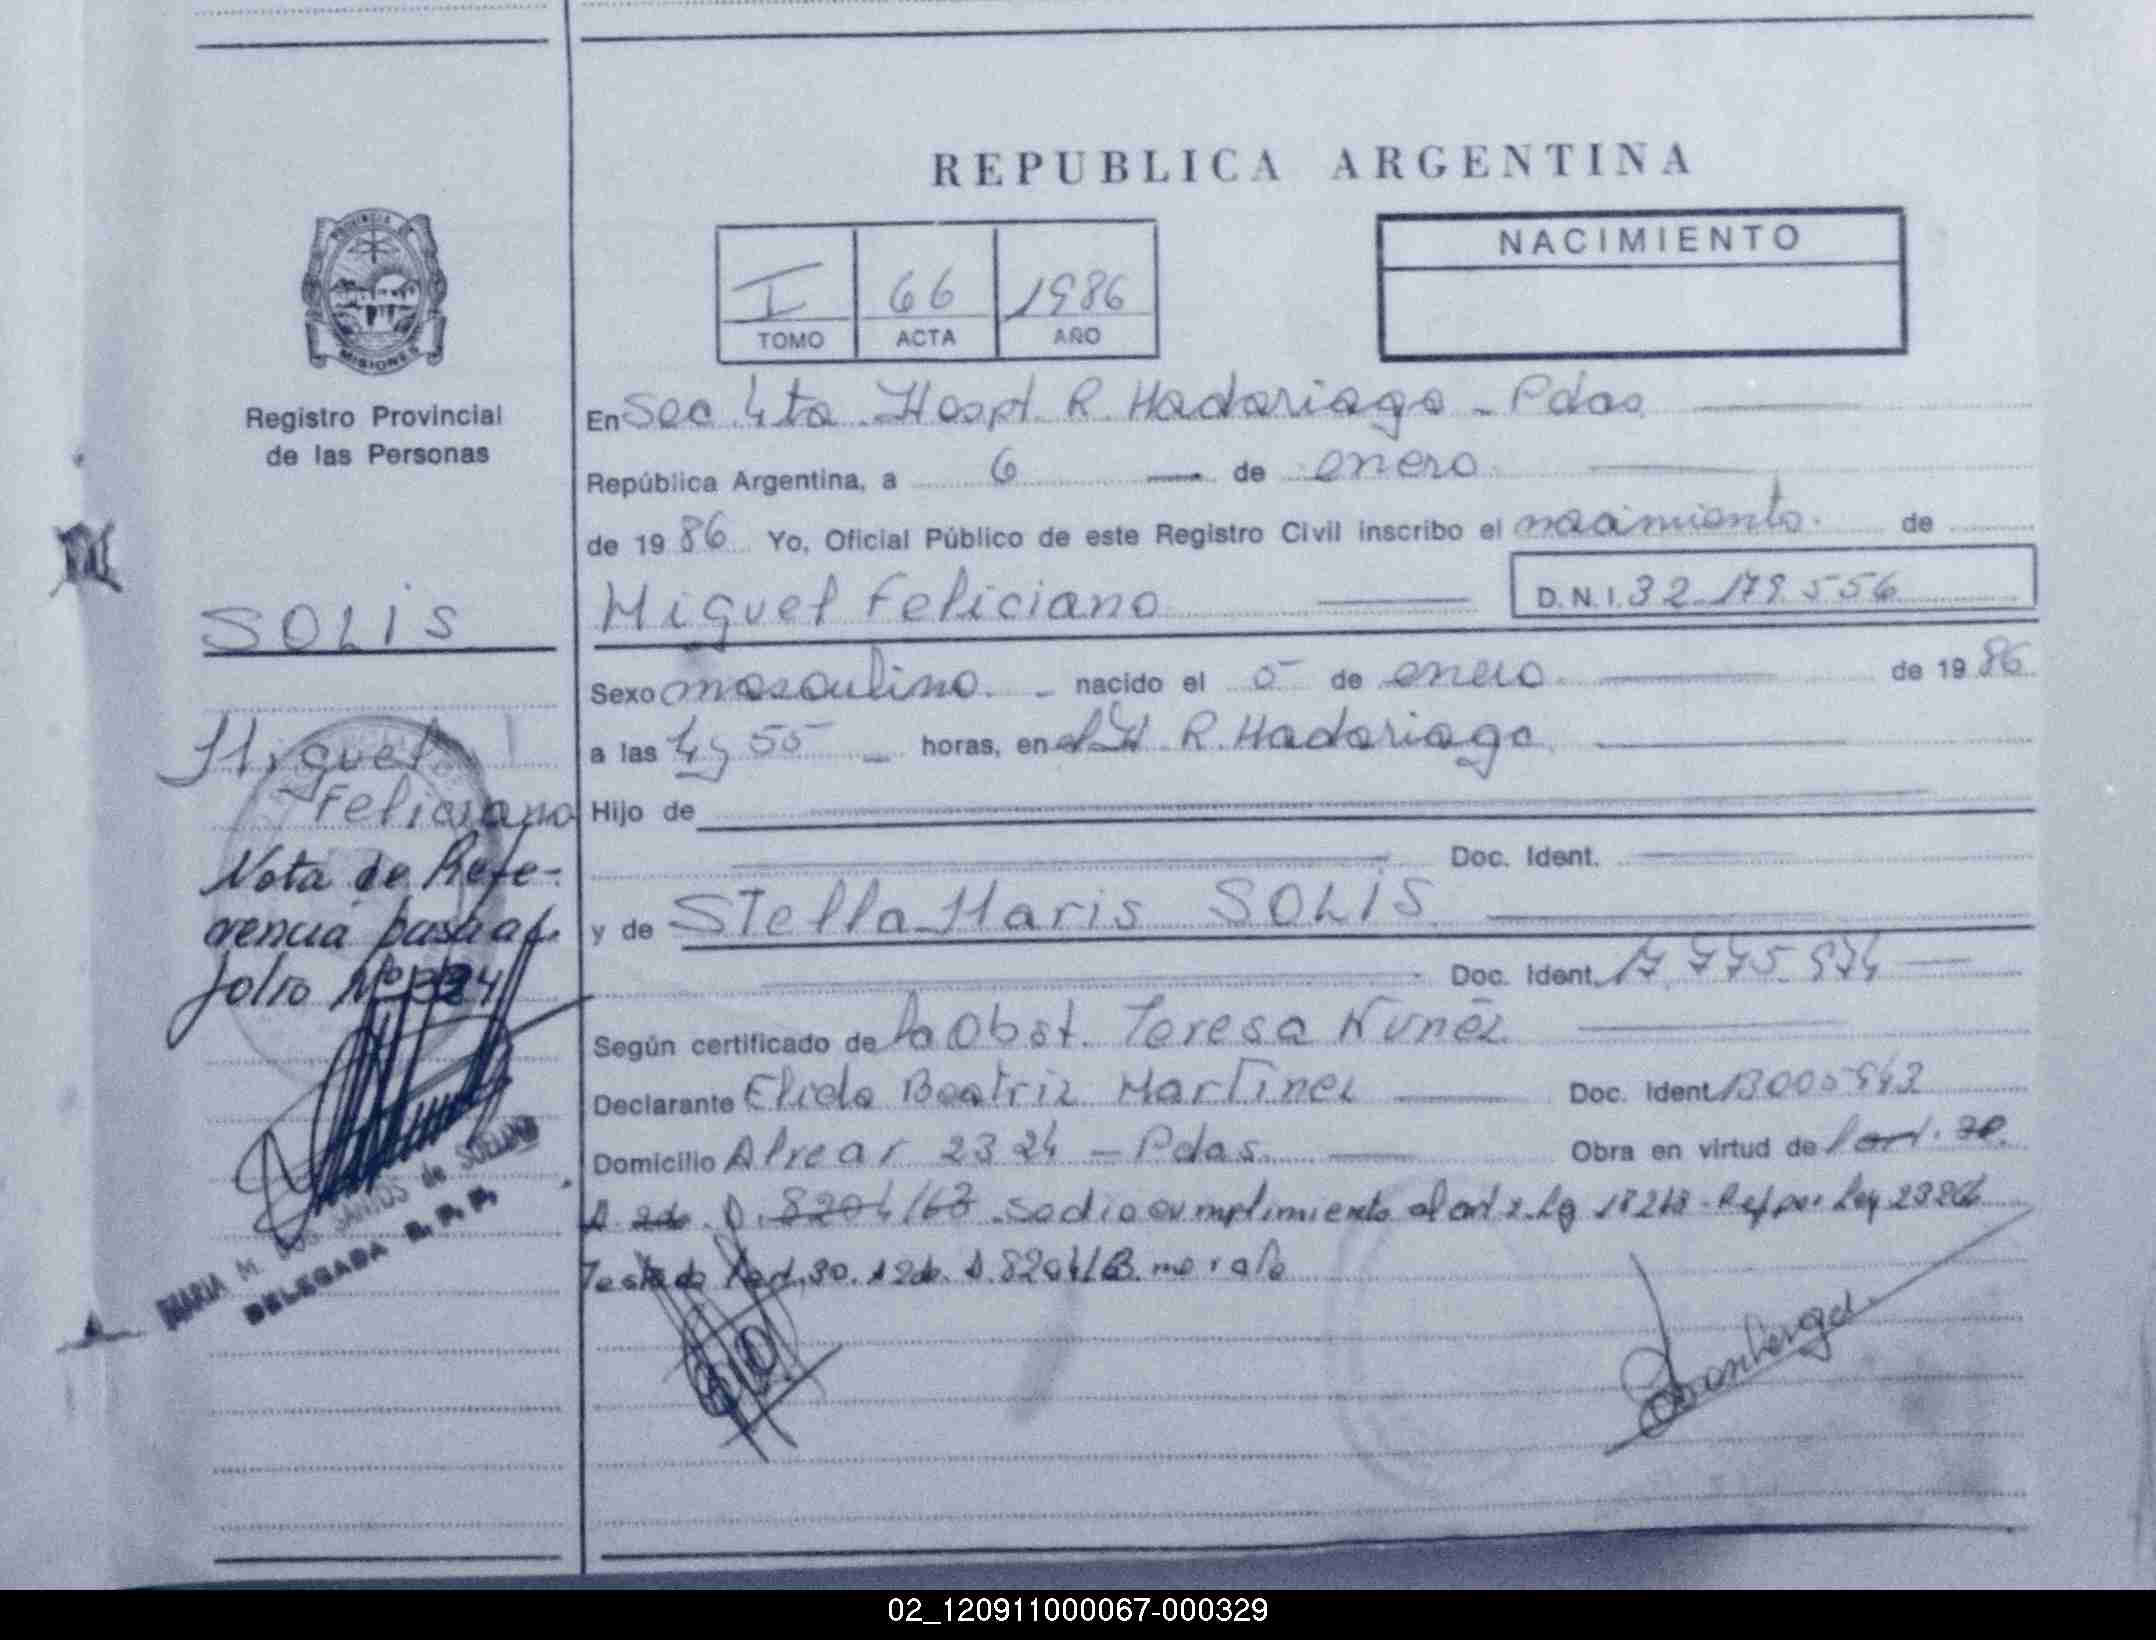 REPUBLICA ARGENTINA
PROVINCIA
MISIONES
Registro Provincial
de las Personas
I 66 1986
TOMO ACTA AÑO
NACIMIENTO
En Sec. 4ta Hospt. R. Madariaga - Pdas
República Argentina, a 6 de enero
de 1986 Yo, Oficial Público de este Registro Civil inscribo el nacimiento de
SOLIS
Miguel Feliciano D.N.I. 32.179.556
Sexo masculino nacido el 5 de enero de 1986
Miguel
Feliciano
a las 4 y 55 horas, en el H R. Madariaga
Hijo de
Doc. Ident.
Nota de Refe-
rencia pasa al
folio Nº 324
y de Stella Maris SOLIS
Doc. Ident. 17.775.974
Según certificado de la Obst. Teresa Nuñez
Declarante Elida Beatriz Martinez Doc. Ident.
Domicilio Alvear 2324 - Pdas. Obra en virtud de l art. 30
D. 8204/63 se dio cumplimiento al art 2 Ley 18248
Testado 8204/63 no vale
MARIA M. DOS SANTOS de
DELEGADA R. P. P.
02_120911000067-000329